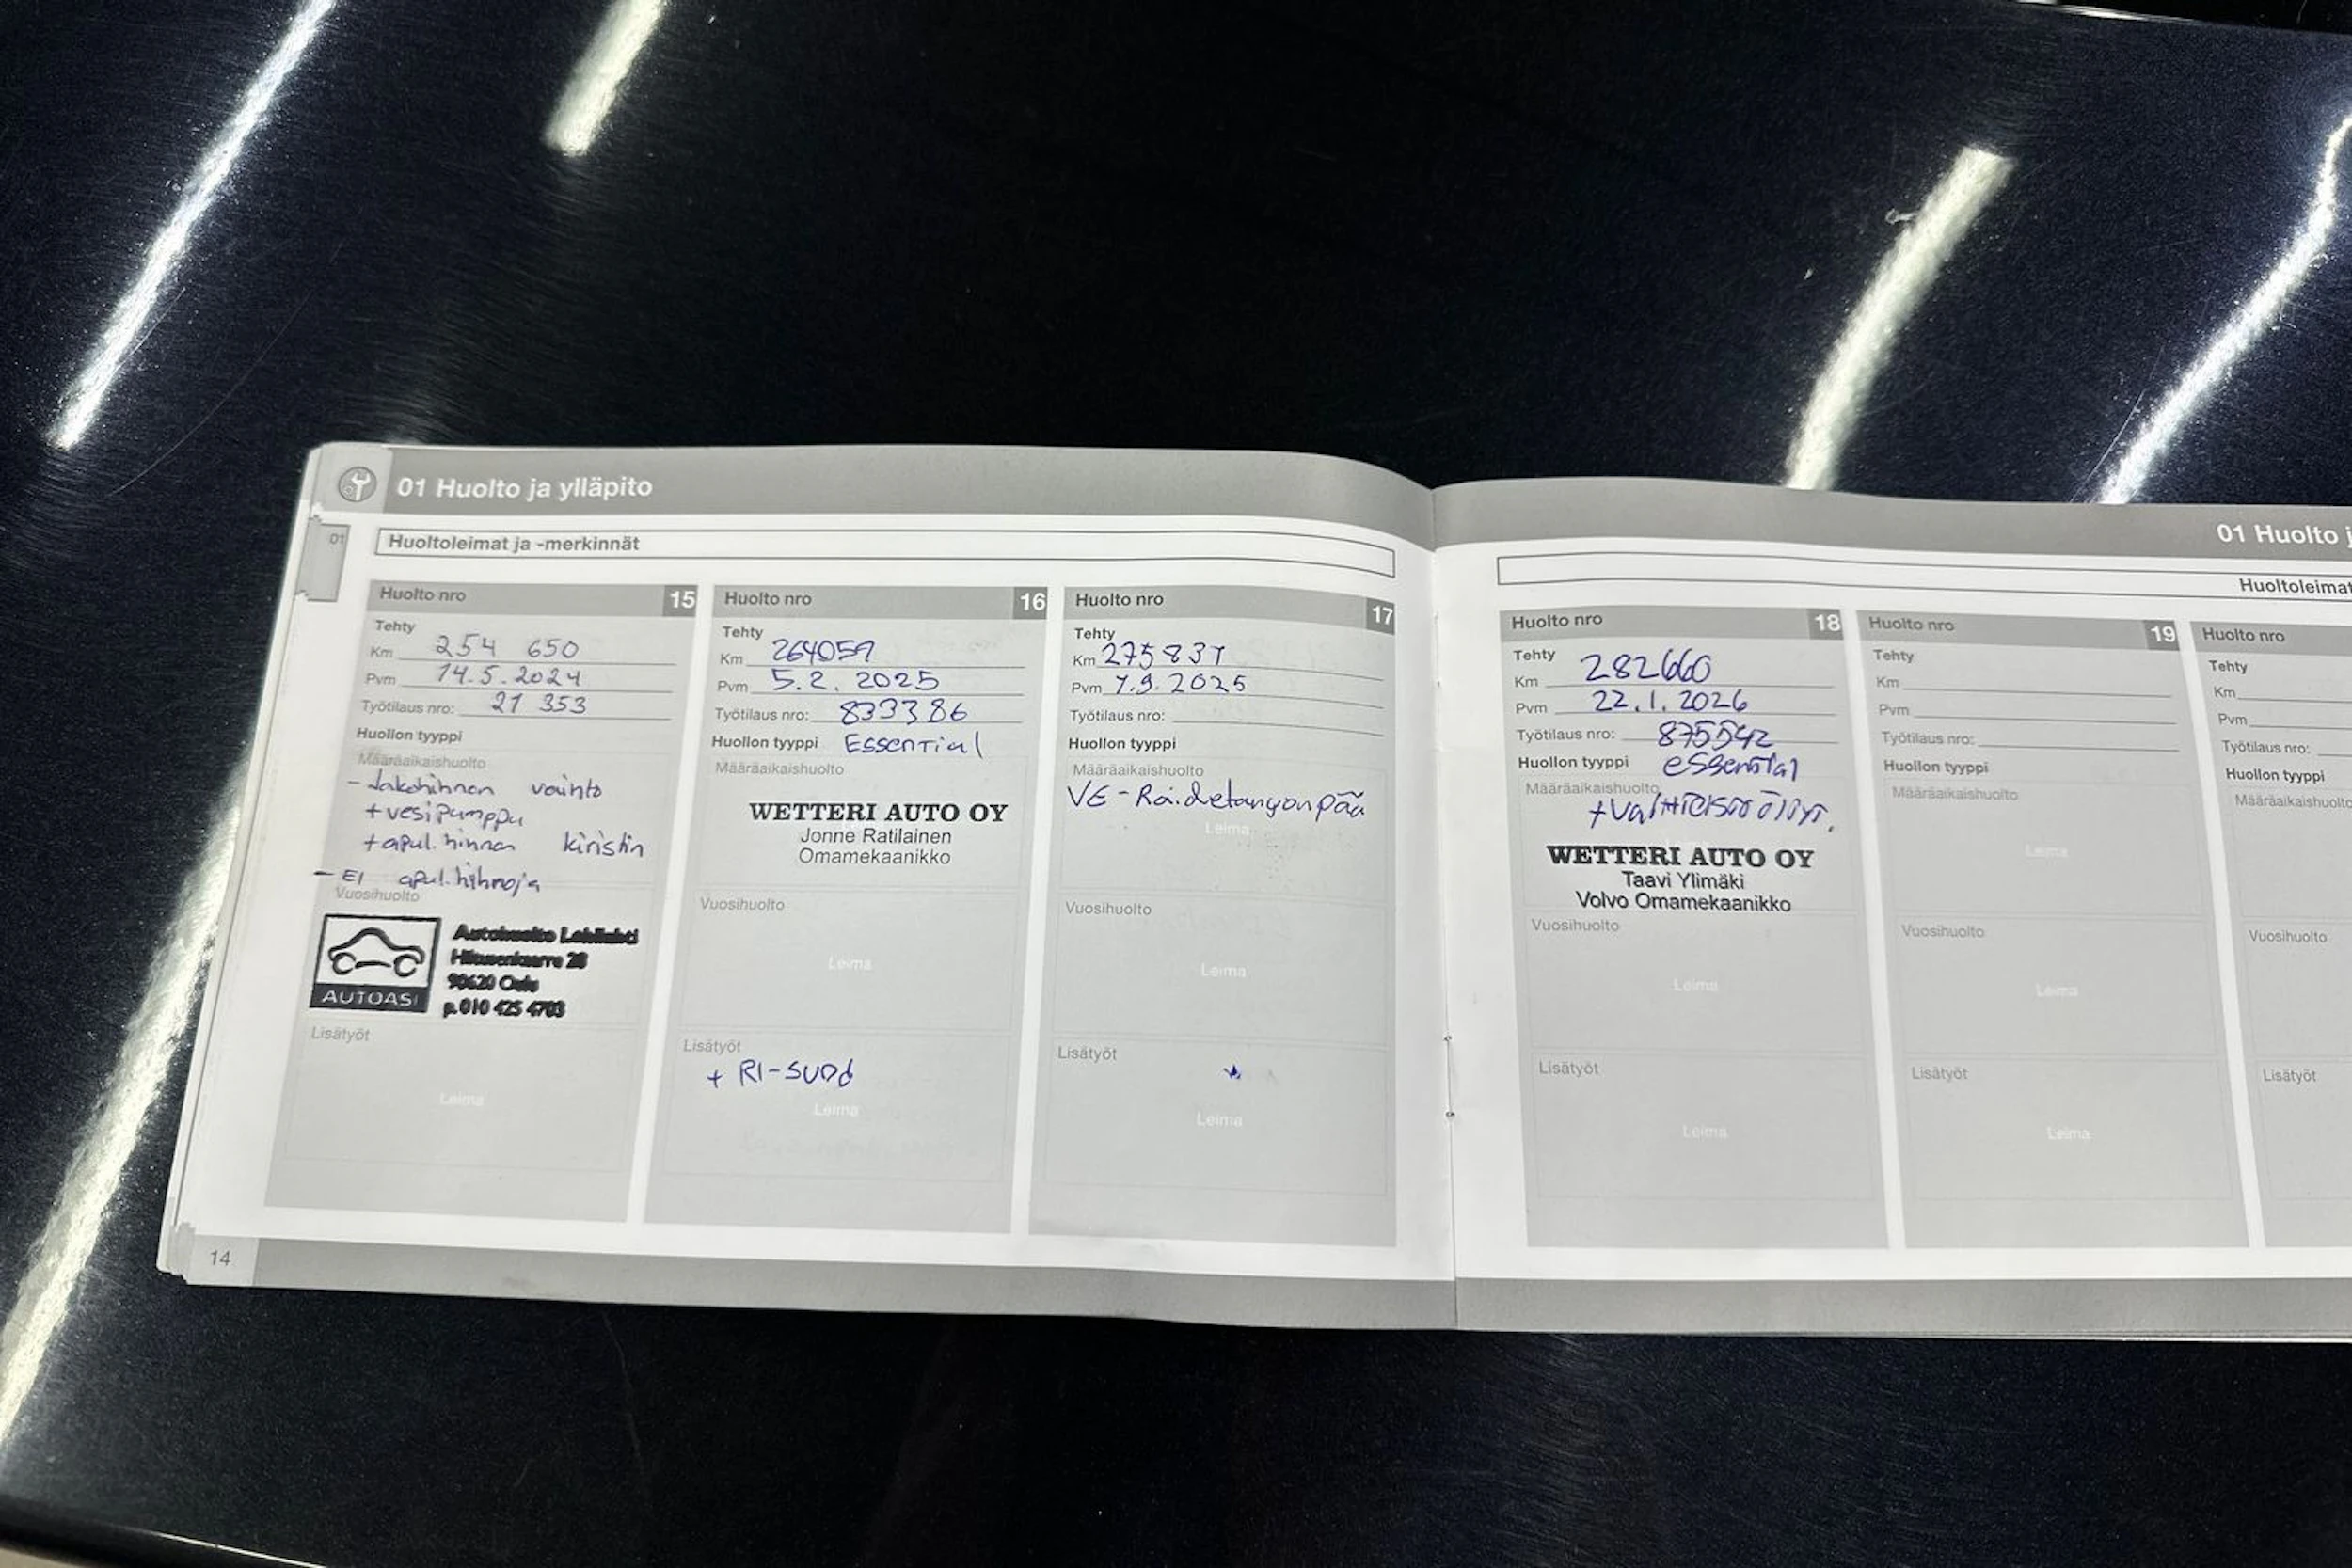 01 Huolto ja ylläpito
01
Huoltoleimat ja -merkinnät
Huolto nro 15
Tehty
Km 254 650
Pvm 14.5.2024
Työtilaus nro: 21 353
Huollon tyyppi
Määräaikaishuolto
- Jakohihnan vaihto
+ vesipumppu
+ apul.hinnan kiristin
- EI apul.hihnoja
Vuosihuolto
AUTOASI
Autohuolto Lehtilahti
28
90620 Oulu
p.010 425 4703
Lisätyöt
Leima
Huolto nro 16
Tehty
Km 264059
Pvm 5.2. 2025
Työtilaus nro: 833386
Huollon tyyppi Essential
Määräaikaishuolto
WETTERI AUTO OY
Jonne Ratilainen
Omamekaanikko
Vuosihuolto
Leima
Lisätyöt
+ RI-SUOd
Leima
Huolto nro 17
Tehty
Km 275837
Pvm 7.9. 2025
Työtilaus nro:
Huollon tyyppi
Määräaikaishuolto
VE-Raidetangonpää
Leima
Vuosihuolto
Leima
Lisätyöt
Leima
14
01 Huolto j
Huoltoleimat
Huolto nro 18
Tehty
Km 282660
Pvm 22.1.2026
Työtilaus nro: 875542
Huollon tyyppi essential
Määräaikaishuolto
WETTERI AUTO OY
Taavi Ylimäki
Volvo Omamekaanikko
Vuosihuolto
Leima
Lisätyöt
Leima
Huolto nro 19
Tehty
Km
Pvm
Työtilaus nro:
Huollon tyyppi
Määräaikaishuolto
Leima
Vuosihuolto
Leima
Lisätyöt
Leima
Huolto nro
Tehty
Km
Pvm
Työtilaus nro:
Huollon tyyppi
Määräaikaishuolto
Vuosihuolto
Lisätyöt